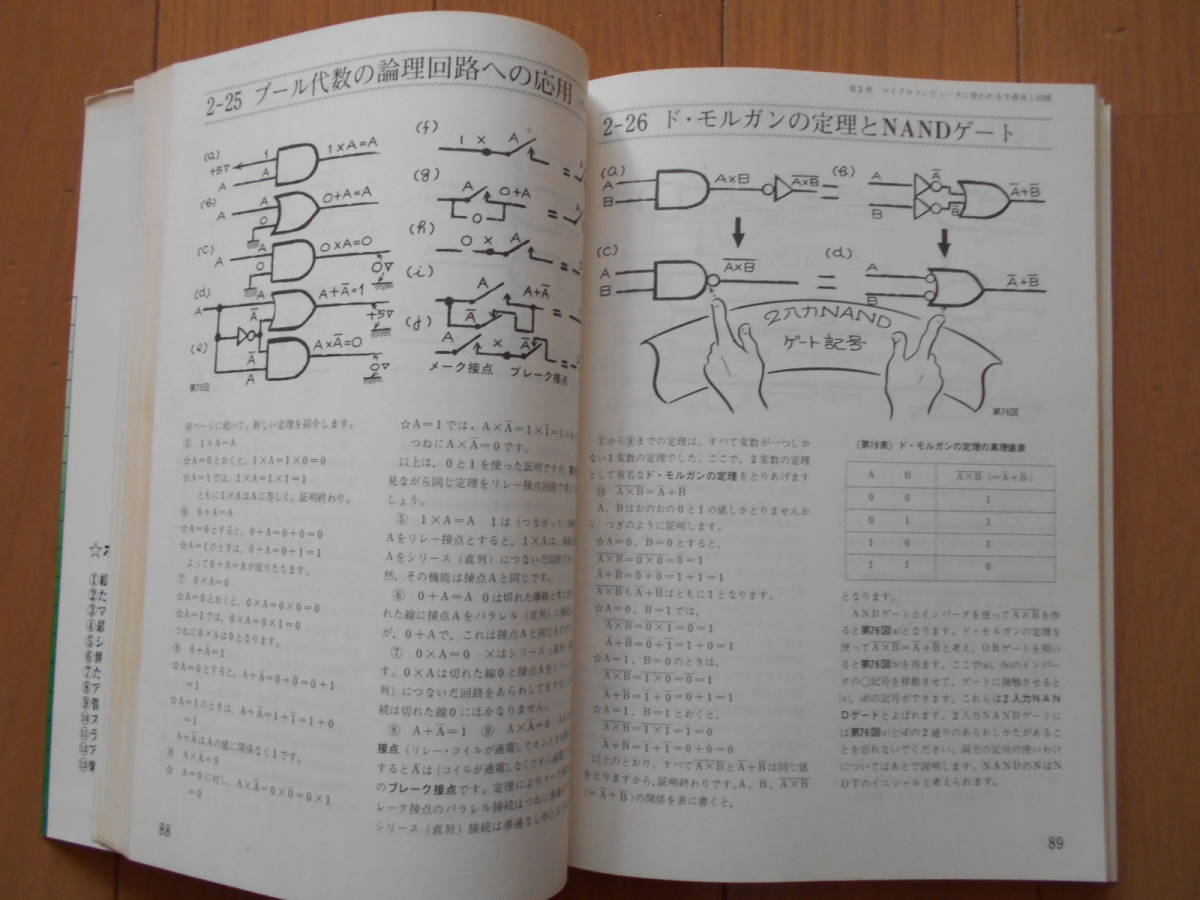 2-25 ブール代数の論理回路への応用
(a)
+5▽
1
A
A
1×A=A
(b)
A
A
0
0+A=A
(c)
A
A
0
0×A=0
0▽
(d)
A
Ā
A+Ā=1
+5▽
(e)
Ā
A
A×Ā=0
0▽
第75図
(f)
1 × A
=
(g)
A 0+A
0
=
(h)
0 × A
=
(i)
A A+Ā
Ā
=
(j)
A × Ā
=
メーク接点 ブレーク接点
前ページに続いて、新しい定理を紹介します。
⑤ 1×A=A
☆A=0とおくと、1×A=1×0=0
☆A=1では、1×A=1×1=1
ともに1×AはAに等しく、証明終わり。
⑥ 0+A=A
☆A=0とすると、0+A=0+0=0
☆A=1のときは、0+A=0+1=1
よって0+A=Aが成りたちます。
⑦ 0×A=0
☆A=0とおくと、0×A=0×0=0
☆A=1では、0×A=0×1=0
つねに0×A=0となります。
⑧ A+Ā=1
☆A=0とすると、A+Ā=0+0̄=0+1
=1
☆A=1のときは、A+Ā=1+1̄=1+0
=1
A+ĀはAの値に関係なく1です。
A×Ā=0
☆ A=0に対し、A×Ā=0×0̄=0×1
=0
88
☆A=1では，A×Ā=1×1̄=1×
つねにA×Ā=0です。
以上は、0と1を使った証明ですが、
見ながら同じ定理をリレー接点回路で
しょう。
⑤ 1×A=A 1は（つながった
Aをリレー接点とすると、1×Aは、
Aをシリーズ（直列）につないだ回路で
然，その機能は接点Aと同じです。
⑥ 0+A=A 0は切れた導線と考え
れた線に接点Aをパラレル（並列）に接続
が，0+Aで，これは接点Aと同じもので
⑦ 0×A=0 ×はシリーズ（直
す。0×Aは切れた線0と接点Aをシリ
列）につないだ回路をあらわしてますが、
続は切れた線0にほかなりません。
⑧ A+Ā=1 ⑨ A×Ā=0
接点（リレー・コイルが通電してオンとなる
するとĀは（コイルが通電しなくてオン
のブレーク接点です。定理によりメーク
レーク接点のパラレル接続はつねに導通
シリーズ（直列）接続は導通なし
☆
①絵
た
②マ
③
④
⑤シ
⑥
⑦た
⑧ア
⑨
⑩ス
⑪ラ
⑫ア
⑬
第2章 マイクロコンピュータに使われる半導体と回路
2-26 ド・モルガンの定理とNANDゲート
(a)
A
B
A×B
A̅×̅B̅
=
(b)
A
B
Ā
B̄
Ā+B̄
(c)
A
B
A̅×̅B̅
=
(d)
A
B
Ā+B̄
2入力NAND
ゲート記号
第76図
①から⑨までの定理は、すべて変数が一つしか
ない1変数の定理でした。ここで、2変数の定理
として有名なド・モルガンの定理をとりあげます
⑩ A̅×̅B̅=Ā+B̄
A，Bはおのおの0と1の値しかとりませんか
ら、つぎのように証明します。
☆A=0，B=0とすると，
A̅×̅B̅=0̅×̅0̅=0̄=1
Ā+B̄=0̄+0̄=1+1=1
A̅×̅B̅もĀ+B̄はともに1となります。
☆A=0，B=1では，
A̅×̅B̅=0̅×̅1̅=0̄=1
Ā+B̄=0̄+1̄=1+0=1
☆A=1，B=0のときは，
A̅×̅B̅=1̅×̅0̅=0̄=1
Ā+B̄=1̄+0̄=0+1=1
☆A=1，B=1とおくと，
A̅×̅B̅=1̅×̅1̅=1̄=0
Ā+B̄=1̄+1̄=0+0=0
以上のとおり，すべてA̅×̅B̅とĀ+B̄は同じ値
をとりますから，証明終わりです。A，B，A̅×̅B̅
(=Ā+B̄)の関係を表に書くと，
《第19表》ド・モルガンの定理の真理値表
A B A̅×̅B̅ (=Ā+B̄)
0 0 1
0 1 1
1 0 1
1 1 0
となります。
ANDゲートとインバータを使ってA̅×̅B̅を作
ると第76図(a)となります。ド・モルガンの定理を
使ってA̅×̅B̅=Ā+B̄と考え，ORゲートを用い
ると第76図(b)を得ます。ここで(a)，(b)のインバー
タの○記号を移動させて，ゲートに接触させると
(c)，(d)の記号ができます。これらは2入力NAN
Dゲートとよばれます。2入力NANDゲートに
は第76図(c)と(d)の2通りのあらわしかたがあるこ
とを忘れないでください。両方の記号の使いわけ
についてはあとで説明します。NANDのNはN
OTのイニシャルと考えられます。
89